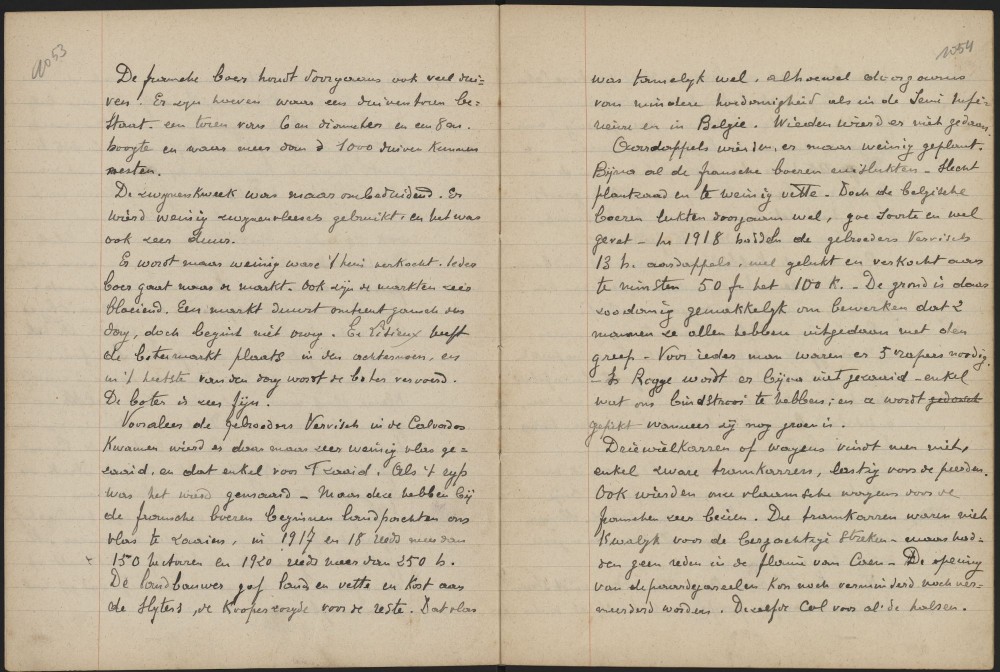 1053
De fransche boer houdt doorgaans ook veel dui=
ven. Er zijn hoeven waar een duiventoren be=
staat. een toren van 6 m diameter en een 8 m.
hoogte en waar meer dan d 1000 duiven kunnen
nesten.
De zwijnenkweek was maar onbeduidend. Er
wierd weinig zwijnenvleesch gebruikt en het was
ook zeer duur.
Er wordt maar weinig ware 't huis verkocht. Ieder
boer gaat naar de markt. Ook zijn de markten zeer
bloeiend. Een markt duurt omtrent gansch den
dag, doch begint niet vroeg. Te Lisieux heeft
de botermarkt plaats in den achternoen, en
in 't heetste van den dag wordt de boter vervoerd.
De boter is zeer fijn.
Vooraleer de gebroeders Vervisch in de Calvados
kwamen wierd er daar maar zeer weinig vlas ge=
zaaid, en dat enkel voor 't zaaid. Als 't rijp
was het wierd gemaaid - Maar deze hebben bij
de fransche boeren beginnen landpachten om
vlas te zaaien, in 1917 en 18 reeds meer dan
150 hectaren en 1920 reeds meer dan 250 h.
De landbouwer gaf land en vette en kost aan
de slijters, de kooper zorgde voor de reste. Dat vlas
1054
was tamelijk wel, alhoewel doorgaans
van mindere hoedanigheid als in de Seine Infé=
rieure en in Belgie. Wieden wierd er niet gedaan.
Aardappels wierden er maar weinig geplant.
Bijna al de fransche boeren mislukten - slecht
plantzaad en te weinig vette. Doch de belgische
boeren lukten doorgaans wel, goe soorte en wel
gevet - In 1918 hadden de gebroeders Vervisch
13 h. aardappels, wel gelukt en verkocht aan
te minsten 50 fr het 100 k. - De grond is daar
zoodanig gemakkelijk om bewerken dat 2
mannen ze allen hebben uitgedaan met den
greep - Voor ieder man waren er 5 rapers noodig.
- Rogge wordt er bijna niet gezaaid - enkel
wat om bindstrooi te hebben; en ze wordt gedorscht
gepikt wanneer zij nog groen is.
Driewielkarren of wagens vindt men niet,
enkel zware tramkarren, lastig voor de peerden.
Ook wierden onze vlaamsche wagens voor de
franschen zeer bezien. Die tramkarren waren niet
kwalijk voor de bergachtige streken - maar had=
den geen reden in de plaine van Caen - De opening
van de paardgareelen kon noch verminderd noch ver=
meerderd worden. Dezelfde Col voor al de halsen.